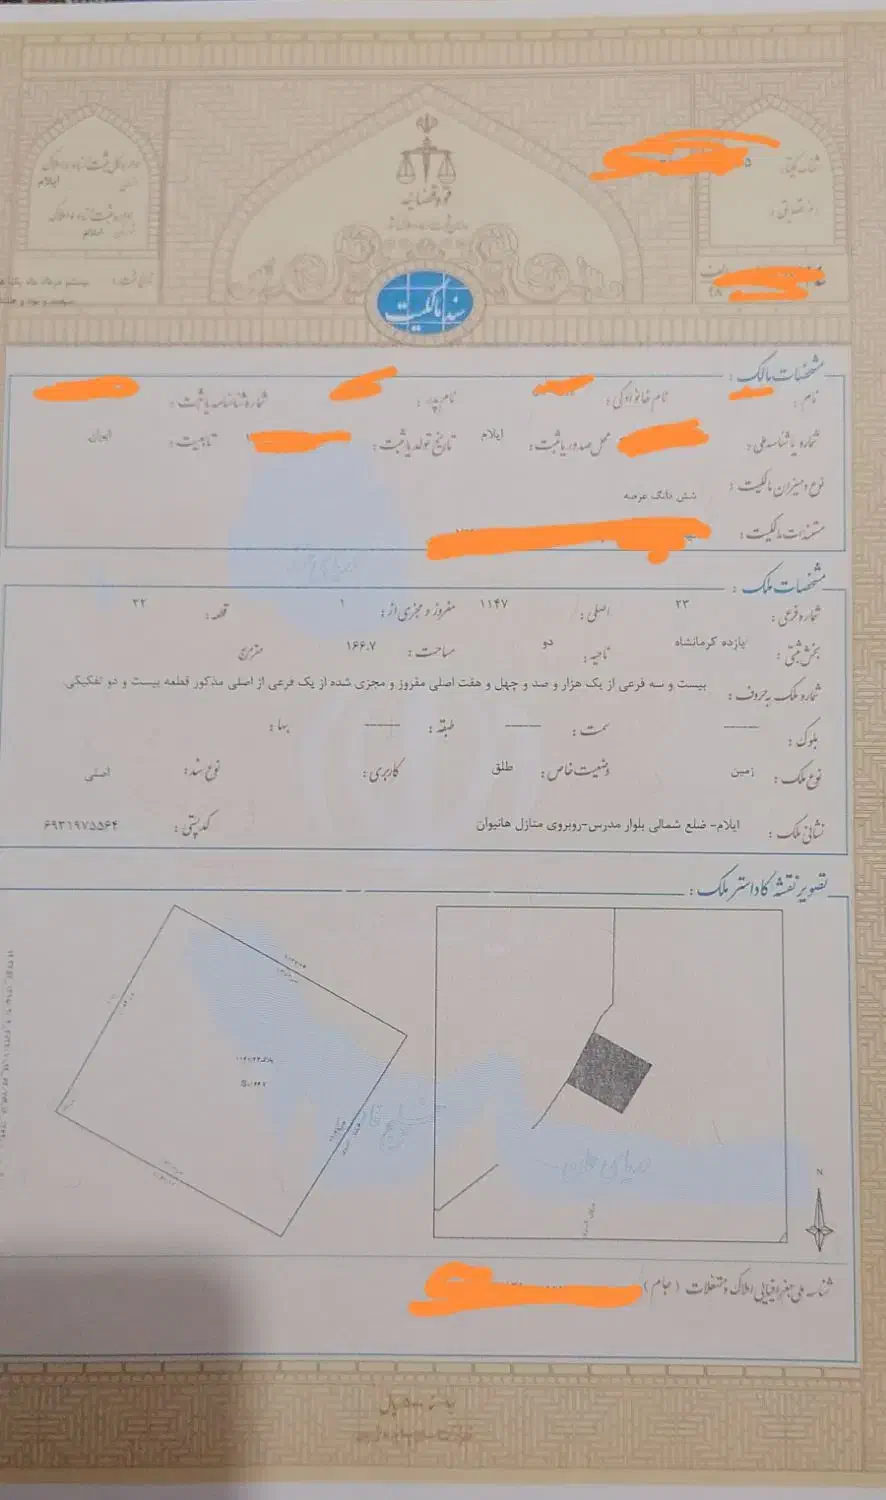 اداره کل ثبت اسناد و املاک
استان ایلام
اداره ثبت اسناد و املاک
شهرستان ایلام
قوه قضائیه
سازمان ثبت اسناد و املاک کشور
شماره یکتا:
سند مالکیت
مشخصات مالک:
نام: نام خانوادگی: نام پدر: شماره شناسنامه یا ثبت:
شماره یا شناسه ملی: محل صدور یا ثبت: ایلام تاریخ تولد یا ثبت: تابعیت: ایران
نوع و میزان مالکیت: شش دانگ عرصه
مستندات مالکیت:
مشخصات ملک:
شماره فرعی: ۲۳ اصلی: ۱۱۴۷ مفروز و مجزی از: ۱ قطعه: ۲۲
بخش ثبتی: یازده کرمانشاه ناحیه: دو مساحت: ۱۶۶.۷ مترمربع
شماره ملک به حروف: بیست و سه فرعی از یک هزار و صد و چهل و هفت اصلی مفروز و مجزی شده از یک فرعی از اصلی مذکور قطعه بیست و دو تفکیکی.
بلوک: سمت: طبقه: بها:
نوع ملک: زمین وضعیت خاص: طلق کاربری: نوع سند: اصلی
نشانی ملک: ایلام- ضلع شمالی بلوار مدرس-روبروی منازل هانیوان کدپستی: ۶۹۳۱۹۷۵۵۶۴
تصویر نقشه کاداستر ملک:
N
شناسه ملی جغرافیایی املاک و مستغلات (جام)